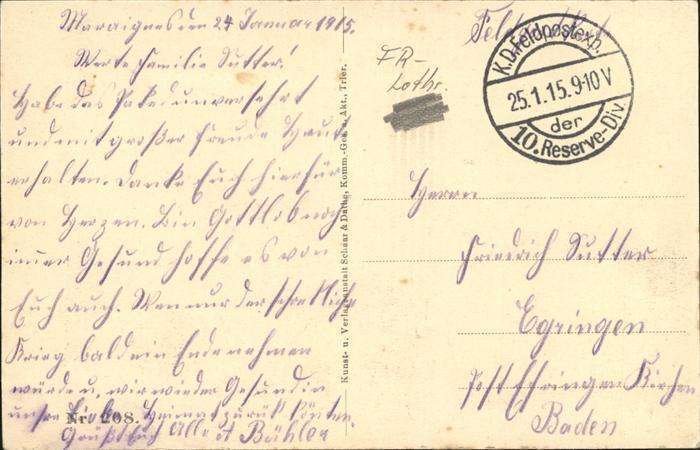 Maraignes den 24 Januar 1915.
Werte Familie Sutter!
Habe das Paked unversehrt
und mit großer Freude Heut
erhalten. Danke Euch hierfür
von Herzen. Bin Gottlob noch
imer Gesund hoffe es von
Euch auch. Wen nur der schreckliche
Krieg bald ein Ende nehmen
würde u. wir wieder Gesund in
unsre Heimat zurük könten
Grüßt Euch Alle
Nr. 208.
Kunst- u. Verlagsanstalt Schaar & Dathe, Komm.-Ges. a. Akt., Trier.
Feldpost
FR-
Lothr.
K.D. Feldpostexp.
25.1.15.9-10V
der
10. Reserve-Div.
Herrn
Friedrich Sutter
Egringen
Post Efringen Kirchen
Baden